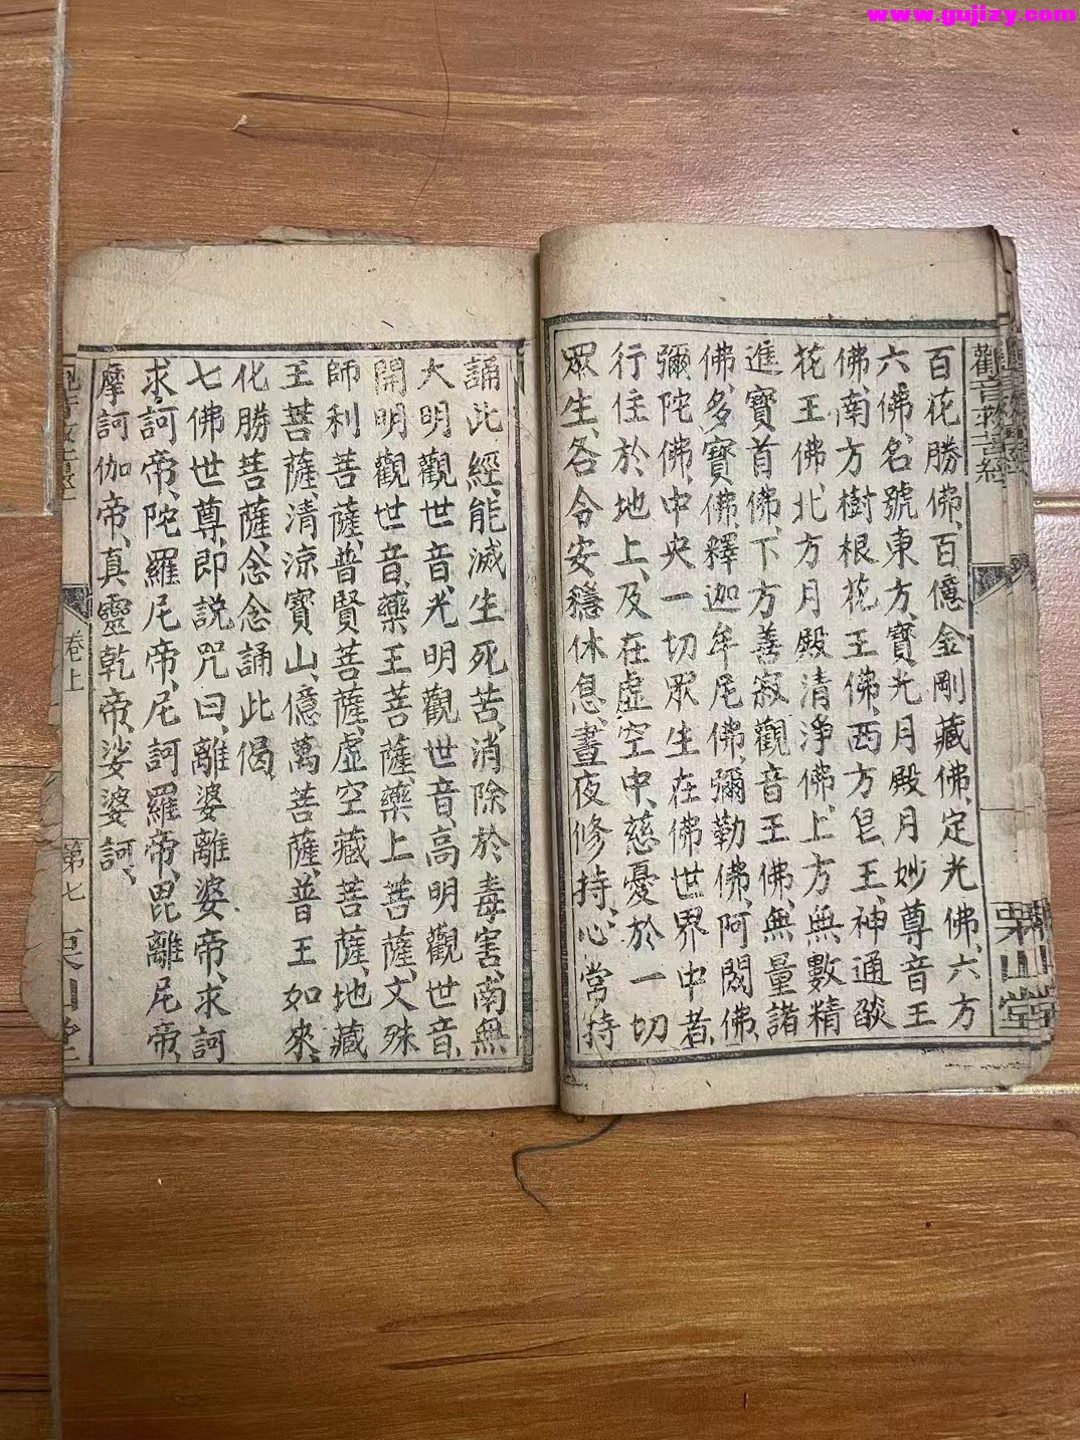 www.gujizy.com
觀音救苦經
栗山堂
百花勝佛、百億金剛藏佛、定光佛、六方
六佛、名號東方、寶光月殿月妙尊音王
佛、南方樹根花王佛、西方皂王、神通燄
花王佛、北方月殿清淨佛、上方無數精
進寶首佛、下方善寂觀音王佛、無量諸
佛、多寶佛、釋迦牟尼佛、彌勒佛、阿閦佛、
彌陀佛、中央一切眾生在佛世界中者、
行住於地上、及在虛空中、慈憂於一切
眾生、各令安穩休息、晝夜修持、心常持
誦此經、能滅生死苦、消除於毒害、南無
大明觀世音、光明觀世音、高明觀世音、
開明觀世音、藥王菩薩、藥上菩薩、文殊
師利菩薩、普賢菩薩、虛空藏菩薩、地藏
王菩薩、清涼寶山、億萬菩薩、普王如來、
化勝菩薩、念念誦此偈
七佛世尊、即説咒曰、離婆離婆帝、求訶
求訶帝、陀羅尼帝、尼訶羅帝、毘離尼帝、
摩訶伽帝、真靈乾帝、娑婆訶、
卷上
第七